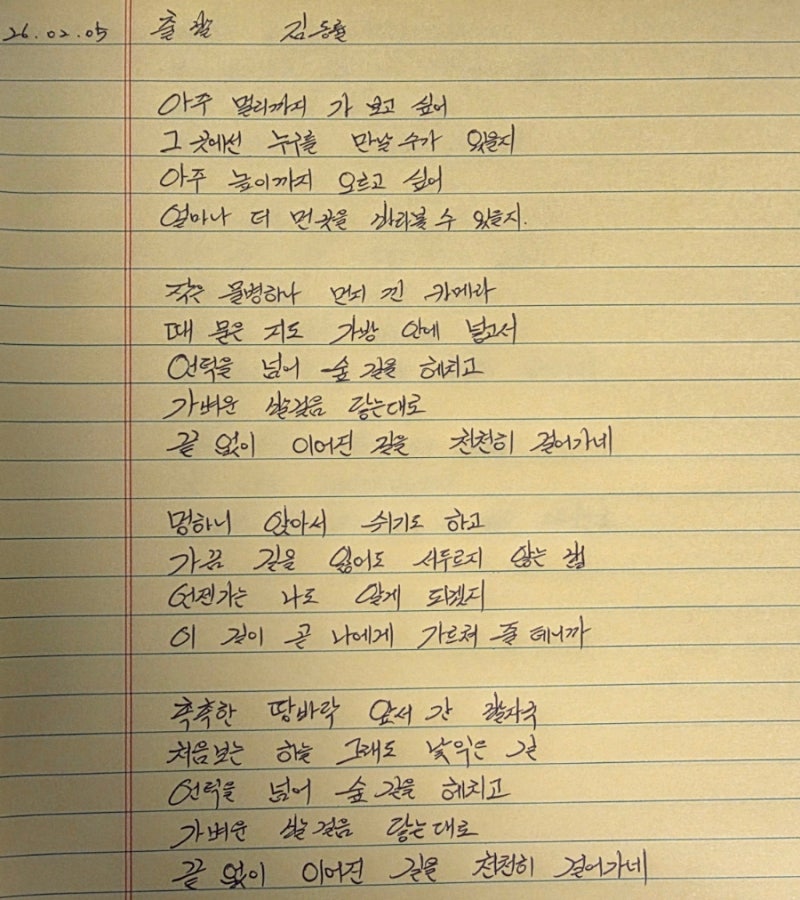 26.02.05 출발 김동률
아주 멀리까지 가 보고 싶어
그 곳에선 누구를 만날 수가 있을지
아주 높이까지 오르고 싶어
얼마나 더 먼곳을 바라볼 수 있을지.
작은 물병하나 먼지 낀 카메라
때 묻은 지도 가방 안에 넣고서
언덕을 넘어 숲 길을 헤치고
가벼운 발걸음 닿는대로
끝 없이 이어진 길을 천천히 걸어가네
멍하니 앉아서 쉬기도 하고
가끔 길을 잃어도 서두르지 않는 법
언젠가는 나도 알게 되겠지
이 길이 곧 나에게 가르쳐 줄 테니까
촉촉한 땅바닥 앞서 간 발자국
처음보는 하늘 그래도 낯익은 길
언덕을 넘어 숲 길을 헤치고
가벼운 발걸음 닿는대로
끝 없이 이어진 길을 천천히 걸어가네